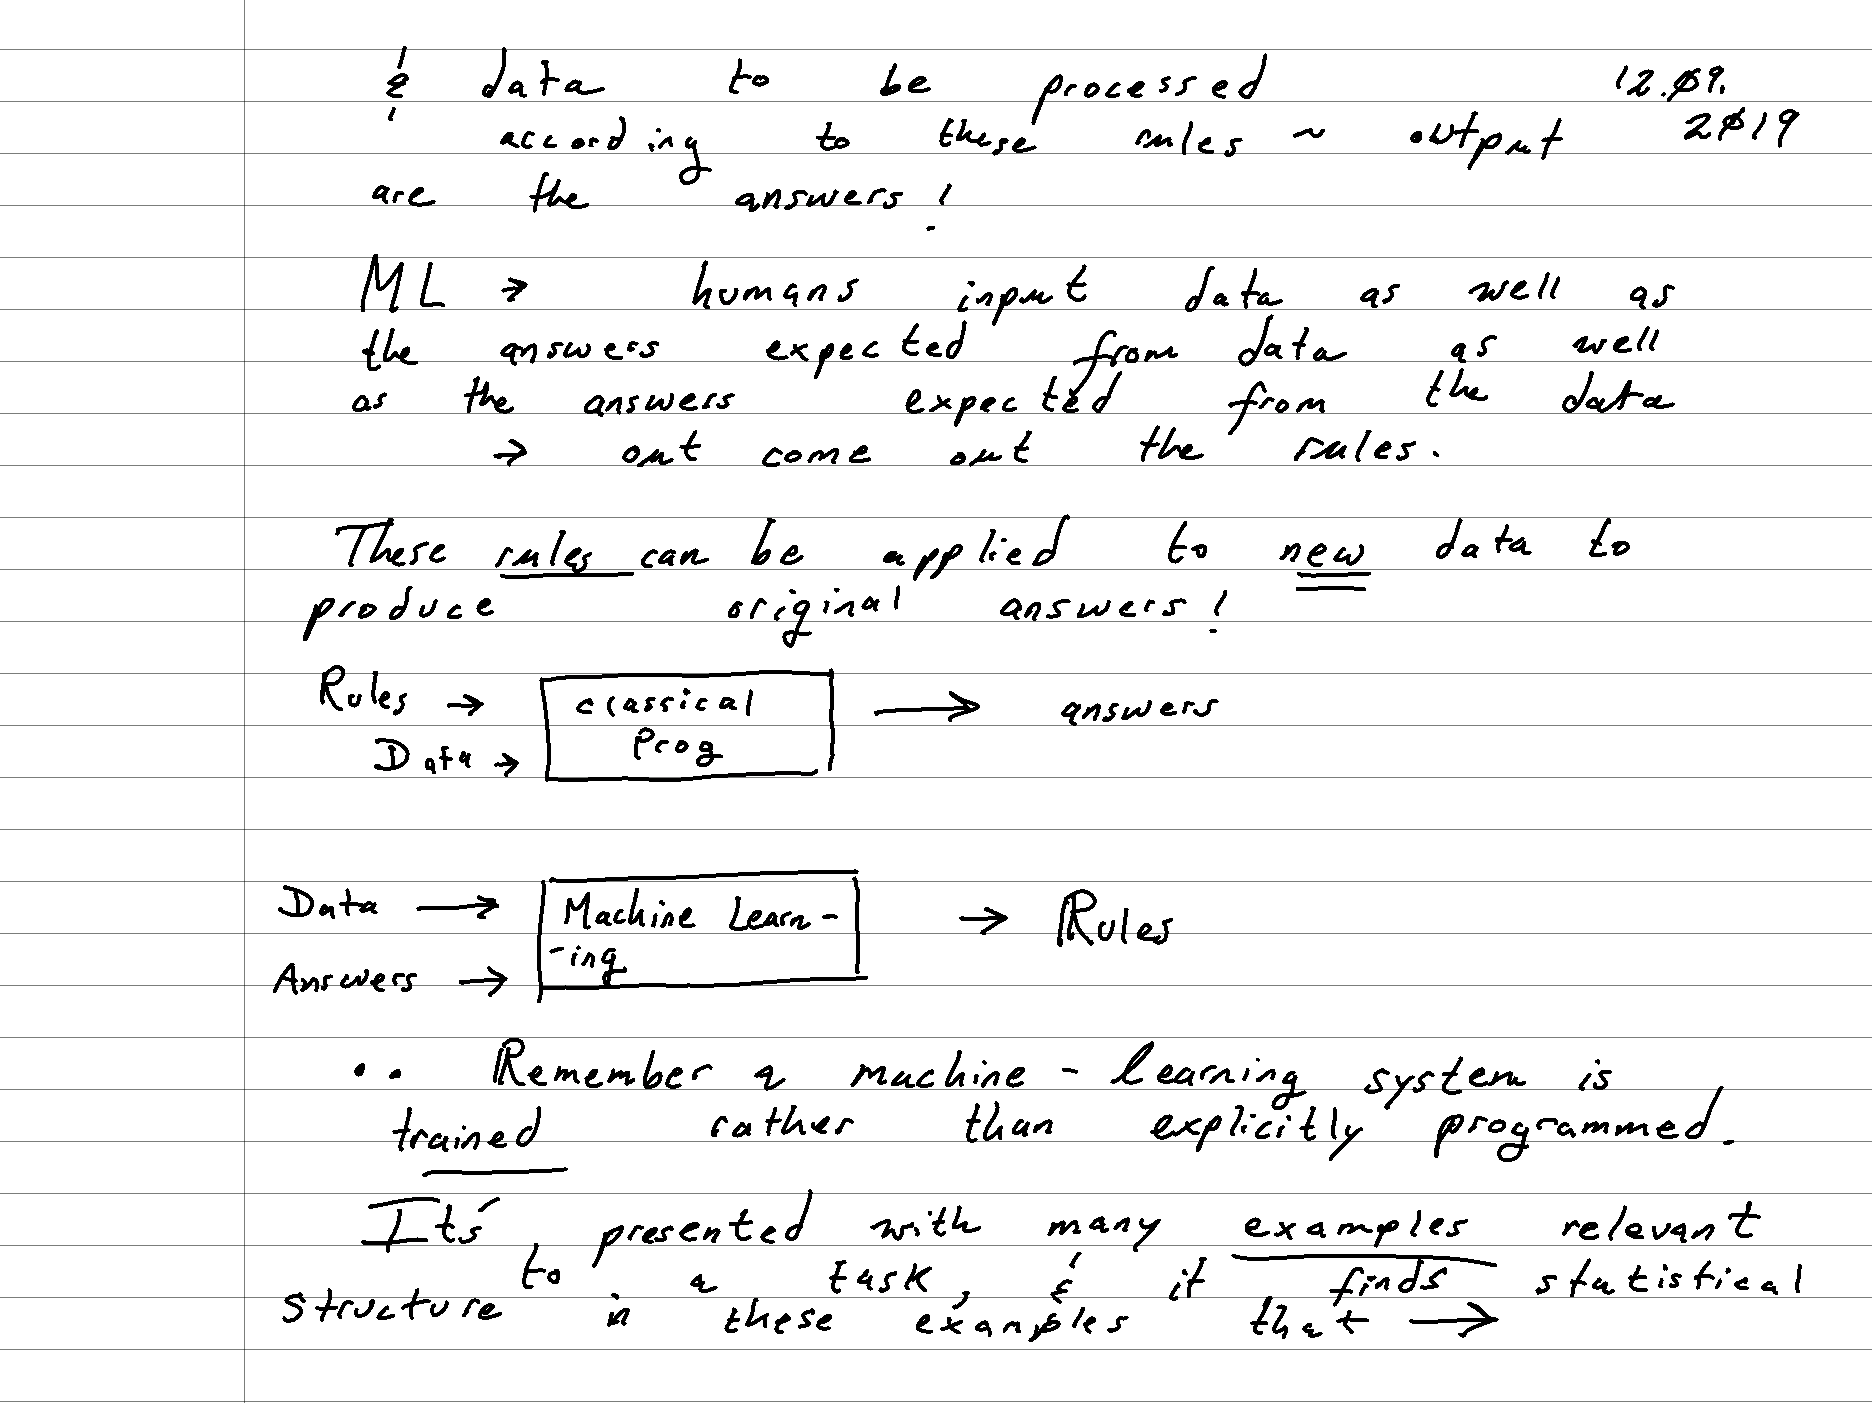 & data to be processed 12.09.
according to these rules ~ output 2019
are the answers!
ML → humans input data as well as
the answers expected from data as well
as the answers expected from the data
→ out come out the rules.
These rules can be applied to new data to
produce original answers!
Rules → classical → answers
Data → Prog
Data → Machine Learn- → Rules
Answers → -ing
.. Remember a machine-learning system is
trained rather than explicitly programmed.
It's presented with many examples relevant
to a task, & it finds statistical
structure in these examples that →